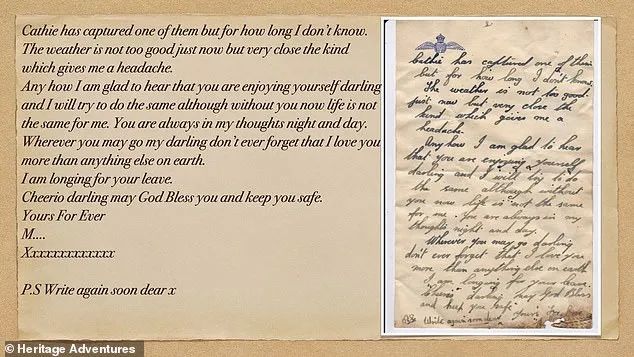 Cathie has captured one of them but for how long I don't know.
The weather is not too good just now but very close the kind
which gives me a headache.
Any how I am glad to hear that you are enjoying yourself darling
and I will try to do the same although without you now life is not
the same for me. You are always in my thoughts night and day.
Wherever you may go my darling don't ever forget that I love you
more than anything else on earth.
I am longing for your leave.
Cheerio darling may God Bless you and keep you safe.
Yours For Ever
M....
Xxxxxxxxxxxxxx
P.S Write again soon dear x
Cathie has captured one of them
but for how long I don't know.
The weather is not too good
just now but very close the
kind which gives me a
headache.
Any how I am glad to hear
that you are enjoying yourself
darling and I will try to do
the same although without
you now life is not the same
for me. You are always in my
thoughts night and day.
Wherever you may go darling
don't ever forget that I love you
more than anything else on earth
I am longing for your leave.
Cheerio darling may God Bless
and keep you safe
Yours For Ever
Write again soon dear
© Heritage Adventures